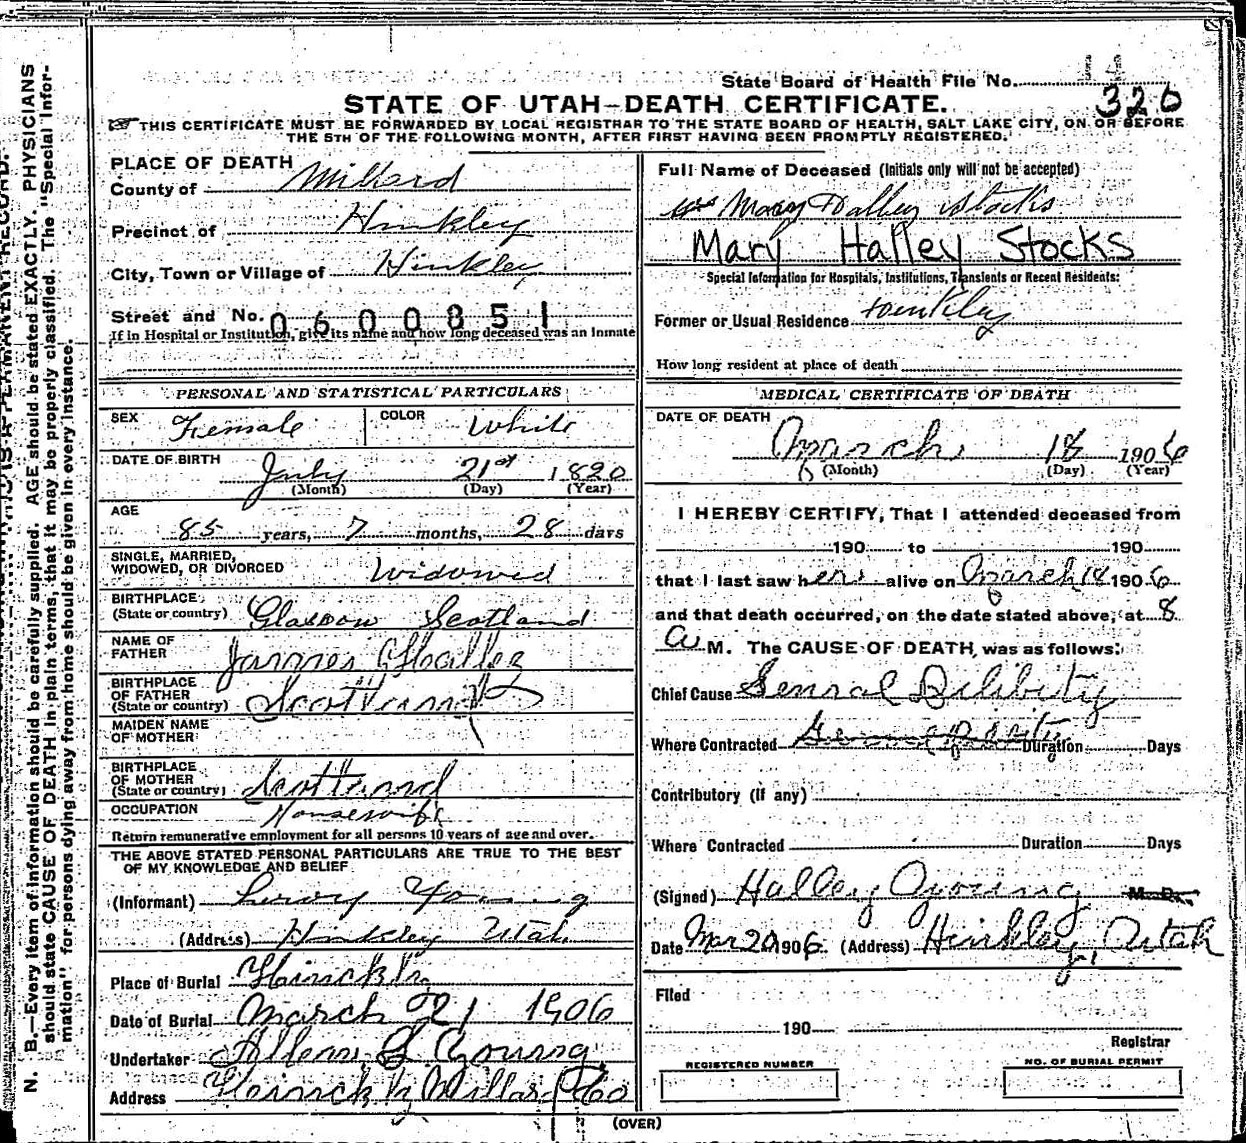 State Board of Health File No.
320
STATE OF UTAH—DEATH CERTIFICATE.
THIS CERTIFICATE MUST BE FORWARDED BY LOCAL REGISTRAR TO THE STATE BOARD OF HEALTH, SALT LAKE CITY, ON OR BEFORE
THE 5TH OF THE FOLLOWING MONTH, AFTER FIRST HAVING BEEN PROMPTLY REGISTERED.
N. B.—Every item of information should be carefully supplied. AGE should be stated EXACTLY. PHYSICIANS
should state CAUSE OF DEATH in plain terms, that it may be properly classified. The "Special Infor-
mation" for persons dying away from home should be given in every instance.
PLACE OF DEATH
County of Millard
Precinct of Hinkley
City, Town or Village of Hinkley
Street and No. 060085 1
If in Hospital or Institution, give its name and how long deceased was an inmate
PERSONAL AND STATISTICAL PARTICULARS
SEX Female COLOR White
DATE OF BIRTH July 21st 1820
(Month) (Day) (Year)
AGE
85 years, 7 months, 28 days
SINGLE, MARRIED,
WIDOWED, OR DIVORCED Widowed
BIRTHPLACE
(State or country) Glasgow Scotland
NAME OF
FATHER James Halley
BIRTHPLACE
OF FATHER
(State or country) Scottland
MAIDEN NAME
OF MOTHER
BIRTHPLACE
OF MOTHER
(State or country) Scottland
OCCUPATION Housewife
Return remunerative employment for all persons 10 years of age and over.
THE ABOVE STATED PERSONAL PARTICULARS ARE TRUE TO THE BEST
OF MY KNOWLEDGE AND BELIEF
(Informant) Young
(Address) Hinkley Utah
Place of Burial
Date of Burial March 21 1906
Undertaker Young
Address Millard Co
Full Name of Deceased (Initials only will not be accepted)
Mrs Mary Halley Stocks
Mary Halley Stocks
Special Information for Hospitals, Institutions, Transients or Recent Residents:
Former or Usual Residence Hinkley
How long resident at place of death
MEDICAL CERTIFICATE OF DEATH
DATE OF DEATH March 18 1906
(Month) (Day) (Year)
I HEREBY CERTIFY, That I attended deceased from
190 to 190
that I last saw her alive on March 18 1906
and that death occurred, on the date stated above, at 8
a M. The CAUSE OF DEATH, was as follows:
Chief Cause Genral Dilibity
Where Contracted Duration Days
Contributory (if any)
Where Contracted Duration Days
(Signed) Halley Young M. D.
Date Mar 20 1906. (Address) Hinkley, Utah
Filed
190
Registrar
REGISTERED NUMBER NO. OF BURIAL PERMIT
(OVER)